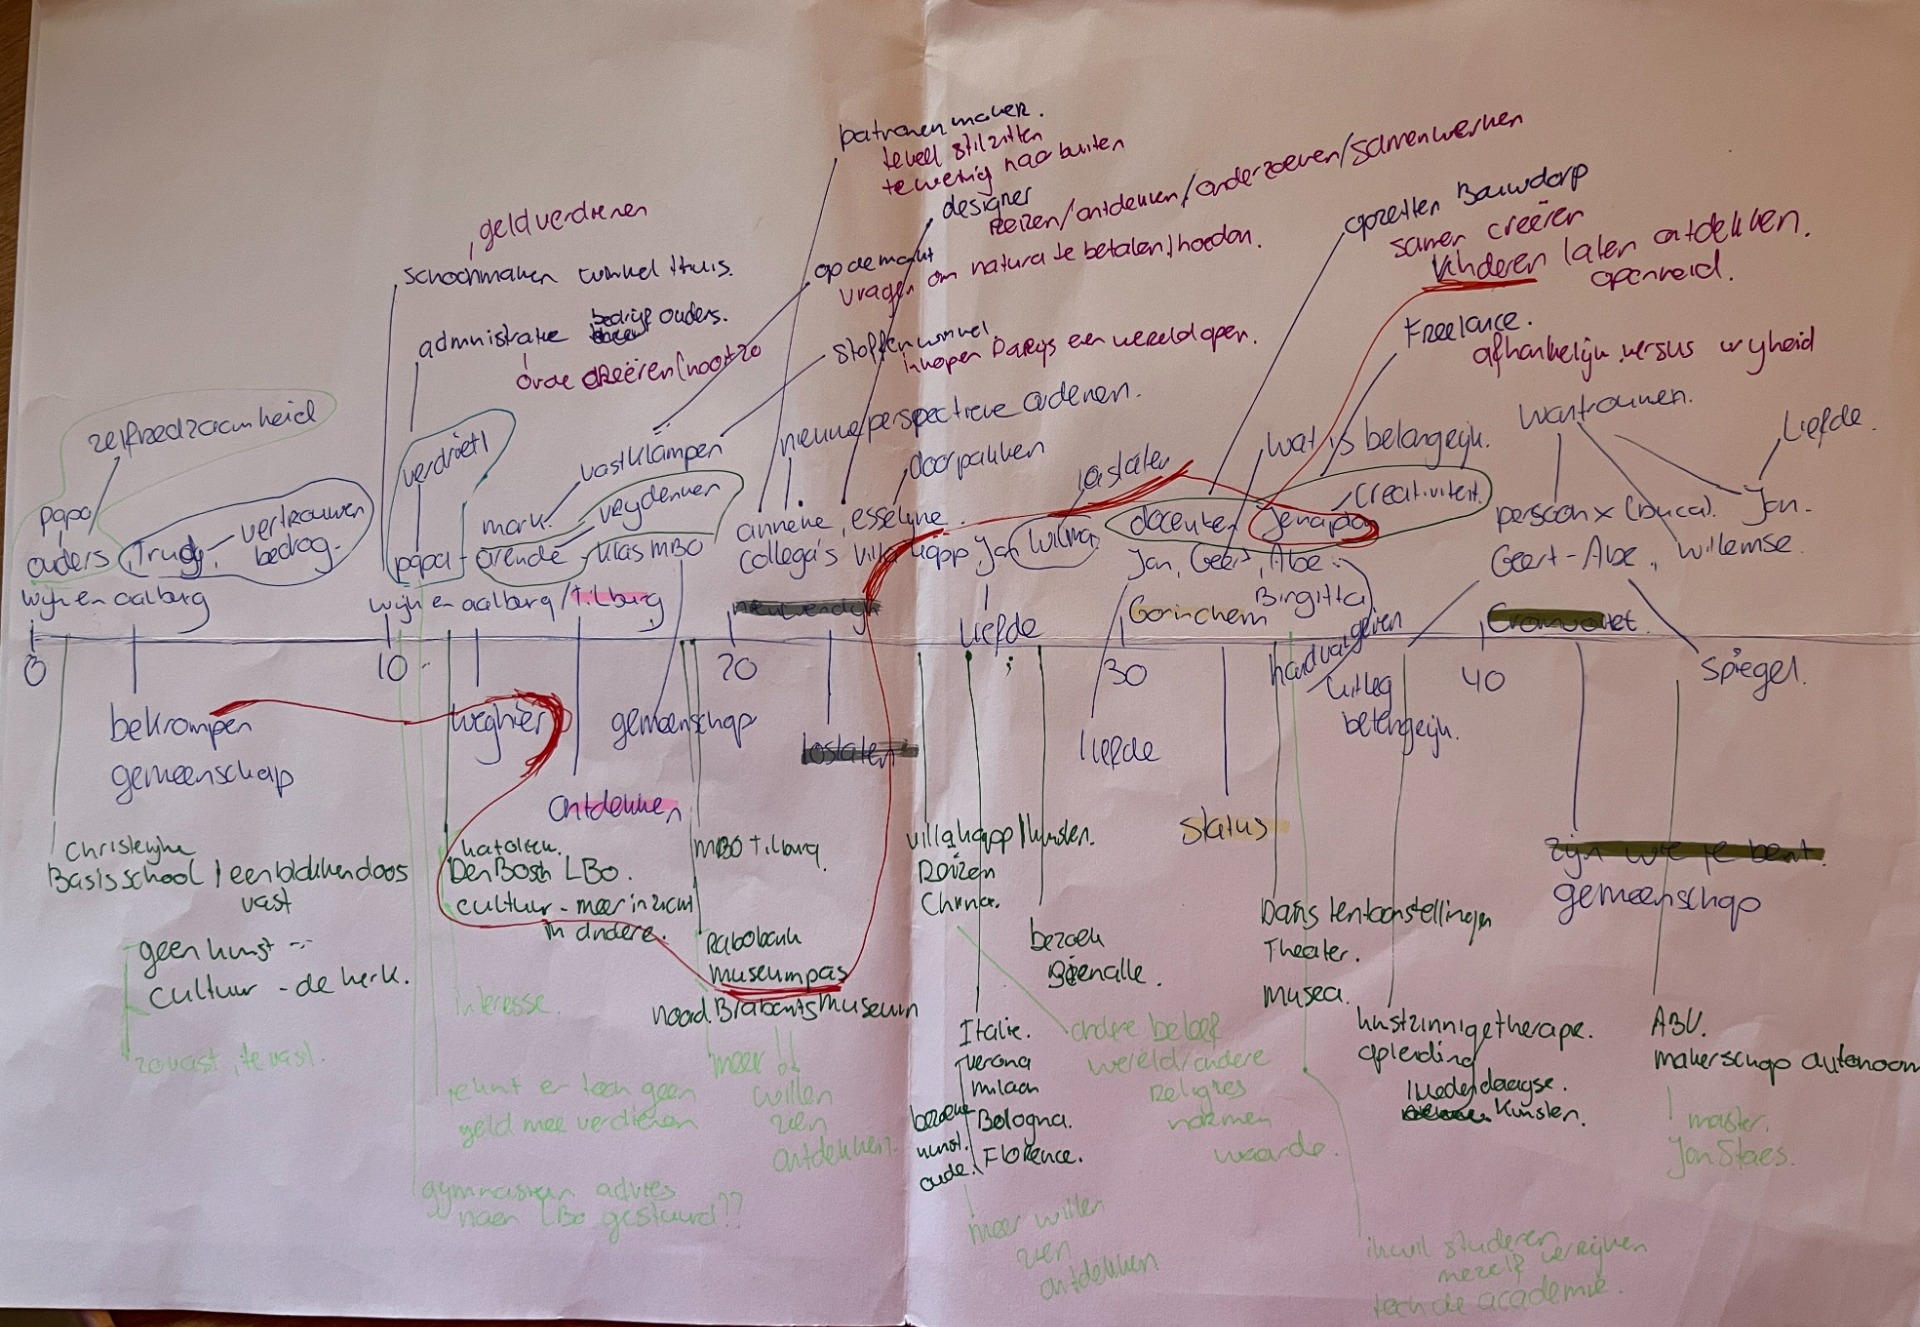 patronen maken.
teveel stilzitten
te weinig naar buiten
designer
Reizen/ontdekken/onderzoeken/samenwerken
op de markt
vragen om natura te betalen/houdan.
stoffenwinkel
inkopen Parijs een wereld open.
nieuwe perspectieve
doorpakken
opzetten Bouwdorp
samen creëren
kinderen laten ontdekken.
openheid.
Freelance.
afhankelijk versus vrijheid
geld verdienen
schoonmaken winkel thuis.
administratie bedrijf ouders.
orde creëren/nooit zo
zelfredzaamheid
papa
ouders
Trudy
vertrouwen
bedrog.
wijk en aalburg
verdriet!
papa
mark.
vastklampen
wegdenken
klas MBO
wijk en aalburg/tilburg
anneke, esselijne
collega's villa happ, Jan
Wilma
loslaten
docenten
Jenaplan
creativiteit.
wat is belangrijk.
Jan, Geert, Abe
Birgitta
Gorinchem
wantrouwen.
Liefde.
persoon x
Jan.
Geert-Abe, Willemse.
0
10
20
30
40
Liefde
spiegel.
uitleg
belangrijk.
bekrompen
gemeenschap
weghier
gemeenschap
loslaten
ontdekken
liefde
status
zijn wie je bent.
gemeenschap
Christelijke
Basisschool / een blokkendoos
vast
geen kunst
cultuur - de kerk.
zo vast, te vast.
katoliek.
Den Bosch LBO.
cultuur - meer inzicht
in andere.
interesse
MBO Tilburg
Rabobank
museumpas
noord Brabants museum
meer
willen
zien
ontdekken.
je kunt er toch geen
geld mee verdienen
gymnasium advies
naar LBO gestuurd??
villa happ/kunsten.
Reizen
China.
bezoek
Biënalle.
Italie.
Verona
milaan
Bologna.
Florence.
bezoek
kunst.
oude.
meer willen
zien
ontdekken
andere beleef
wereld/andere
Religies
normen
waarde.
Dans tentoonstellingen
Theater.
musea.
kunstzinnige therapie.
opleiding
hedendaagse.
Kunsten.
ik wil studeren
mezelf verrijken
toch de academie.
ABV.
makerschap autonoom
master.
Jan Staes.